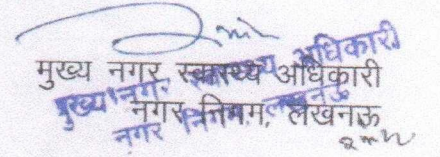 मुख्य नगर स्वास्थ्य अधिकारी
नगर निगम, लखनऊ
मुख्य नगर स्वास्थ्य अधिकारी
नगर निगम, लखनऊ